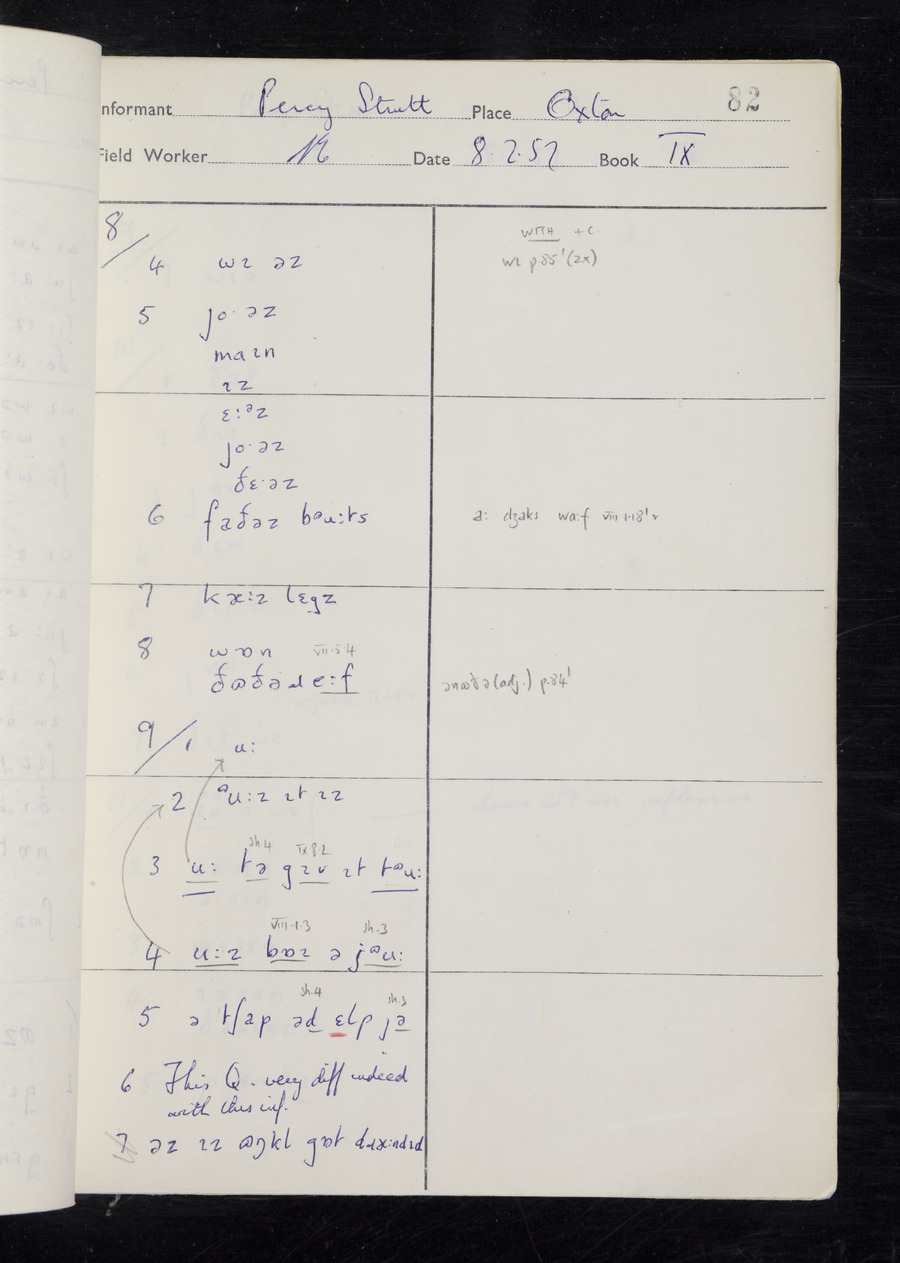 82
Informant Percy Strutt Place Oxton
Field Worker Date 8.2.57 Book IX
8/
4 wɪ əz
WITH + C.
wɪ p.85' (2x)
5 jo·əz
maɪn
ɪz
ɛ:ᵊz
jo·əz
ðɛ·əz
6 faðəz bᶷu:ts
a: dʒaks wa:f VIII.1.18'
7 kæ:z lɛgz
8 wɒn VII.5.4
ðɷðəɹe:f
ənɷðə (adj.) p.84'
9/1 u:
2 ᶷu:z ɪt ɪz
sh.4 IX.8.2
3 u: tə gɪv ɪt tᶷu:
VIII.1.3 sh.3
4 u:z bɒɪ ə jᶷu:
sh.4 sh.3
5 ə tʃap əd ɛlp jə
6 This Q. very diff indeed
with this inf.
7 əz ɪz ɷŋkl gɒt dɹæ:ndɪd